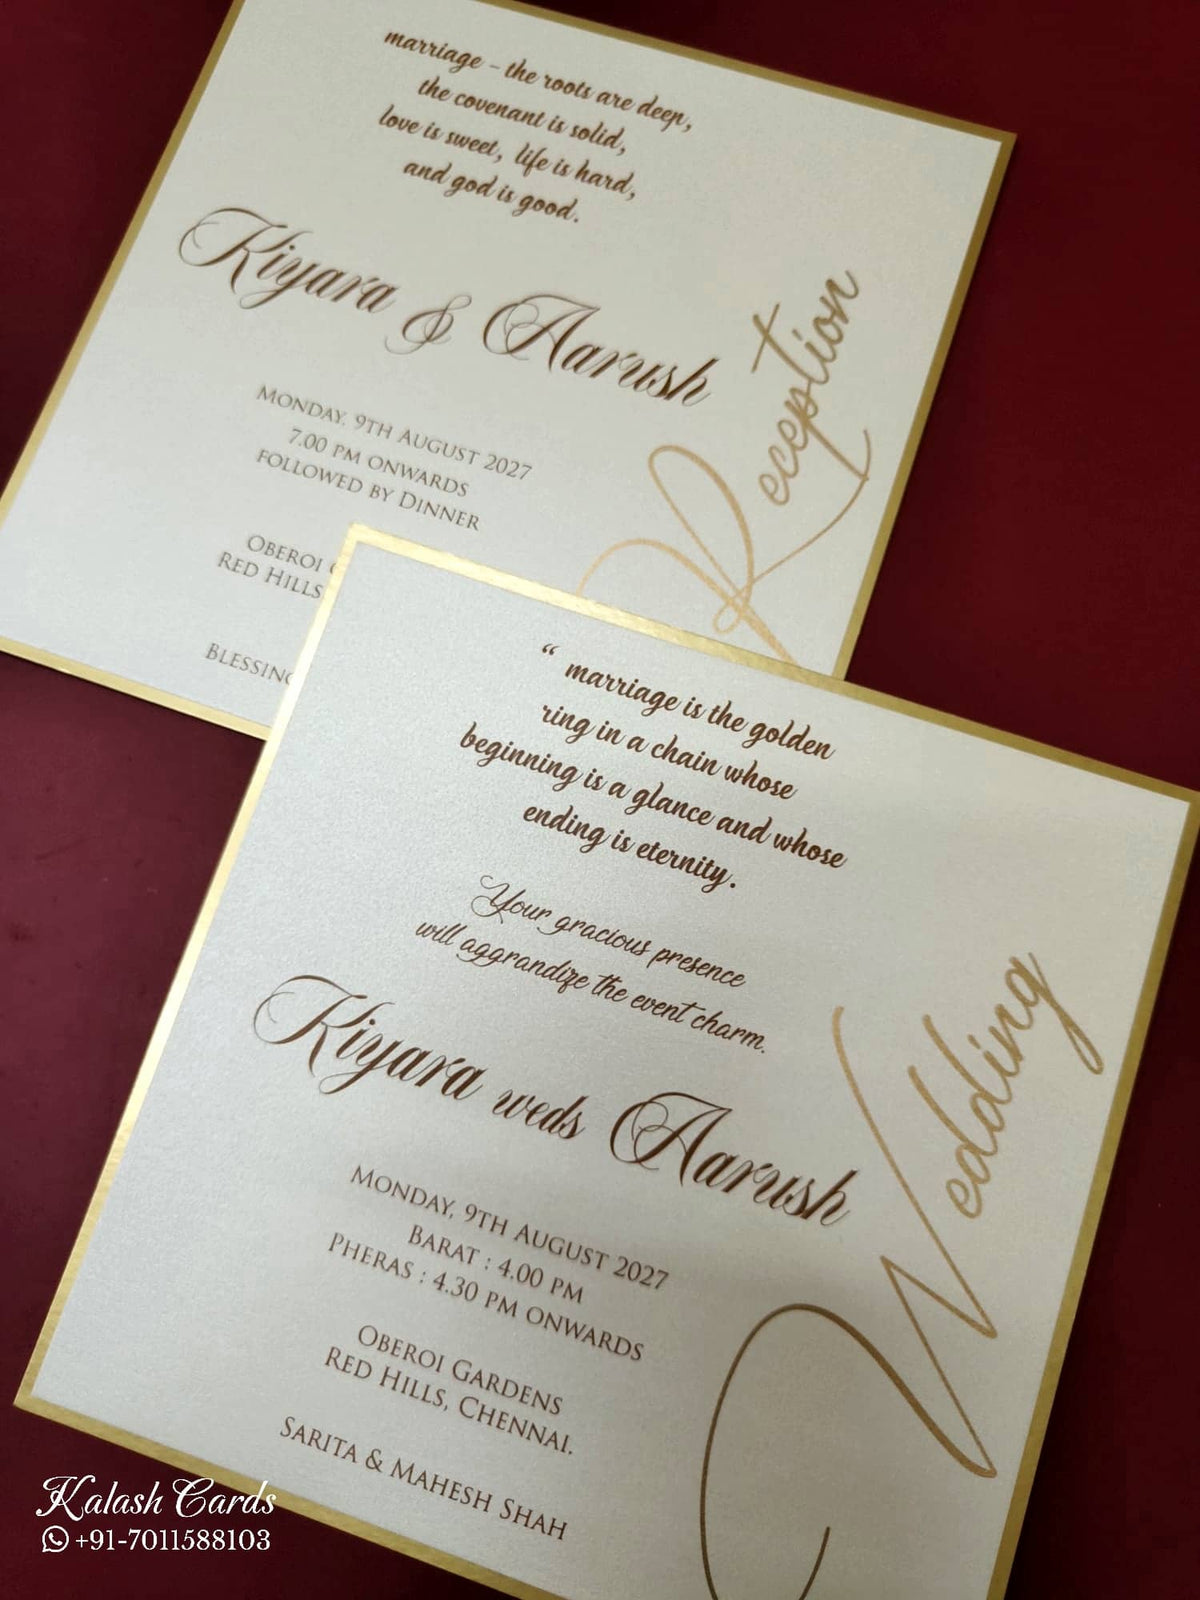 marriage - the roots are deep,
the covenant is solid,
love is sweet, life is hard,
and god is good.
Kiyara & Aarush
Monday, 9th August 2027
7.00 pm onwards
followed by Dinner
Oberoi
Red Hills
Reception
“ marriage is the golden
ring in a chain whose
beginning is a glance and whose
ending is eternity.
Your gracious presence
will aggrandize the event charm.
Kiyara weds Aarush
Monday, 9th August 2027
Barat : 4.00 pm
Pheras : 4.30 pm onwards
Oberoi Gardens
Red Hills, Chennai.
Sarita & Mahesh Shah
Wedding
Kalash Cards
+91-7011588103